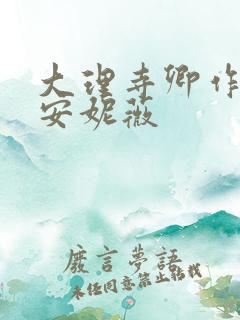 大理寺卿作
安妮薇
廢言夢語
未经同意禁止转载